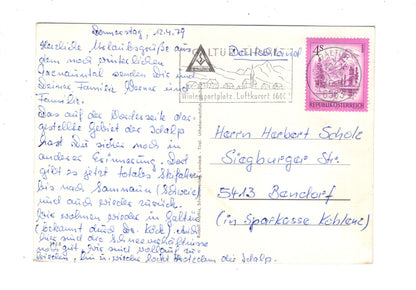 Donnerstag, 12.4.79
Herzliche Urlaubsgrüße aus
dem noch winterlichen
Paznauntal senden Dir und
Deiner Familie Deerne und
Familie.
Das auf der Vorderseite dar-
gestellte Gebiet der Idalp
hast Du sicher noch in
anderer Erinnerung. Dort
gibt es jetzt totales Skifahren
bis nach Samnaun (Schweiz)
und auch wieder zurück.
Wir wohnen wieder in Galtür
(bekannt durch Dr. Köck). Auch
hier sind die Schneeverhältnisse
noch gut. Wir sind wohlauf zu-
frieden, hin u. wieder lockt trotzdem die Idalp.
GALTÜR TIROL
Wintersportplatz, Luftkurort 1600
GALTÜR
6563
4 S
REPUBLIK ÖSTERREICH
Herrn Herbert Scholz
Siegburger Str.
5413 Bendorf
(in Sparkasse Koblenz)